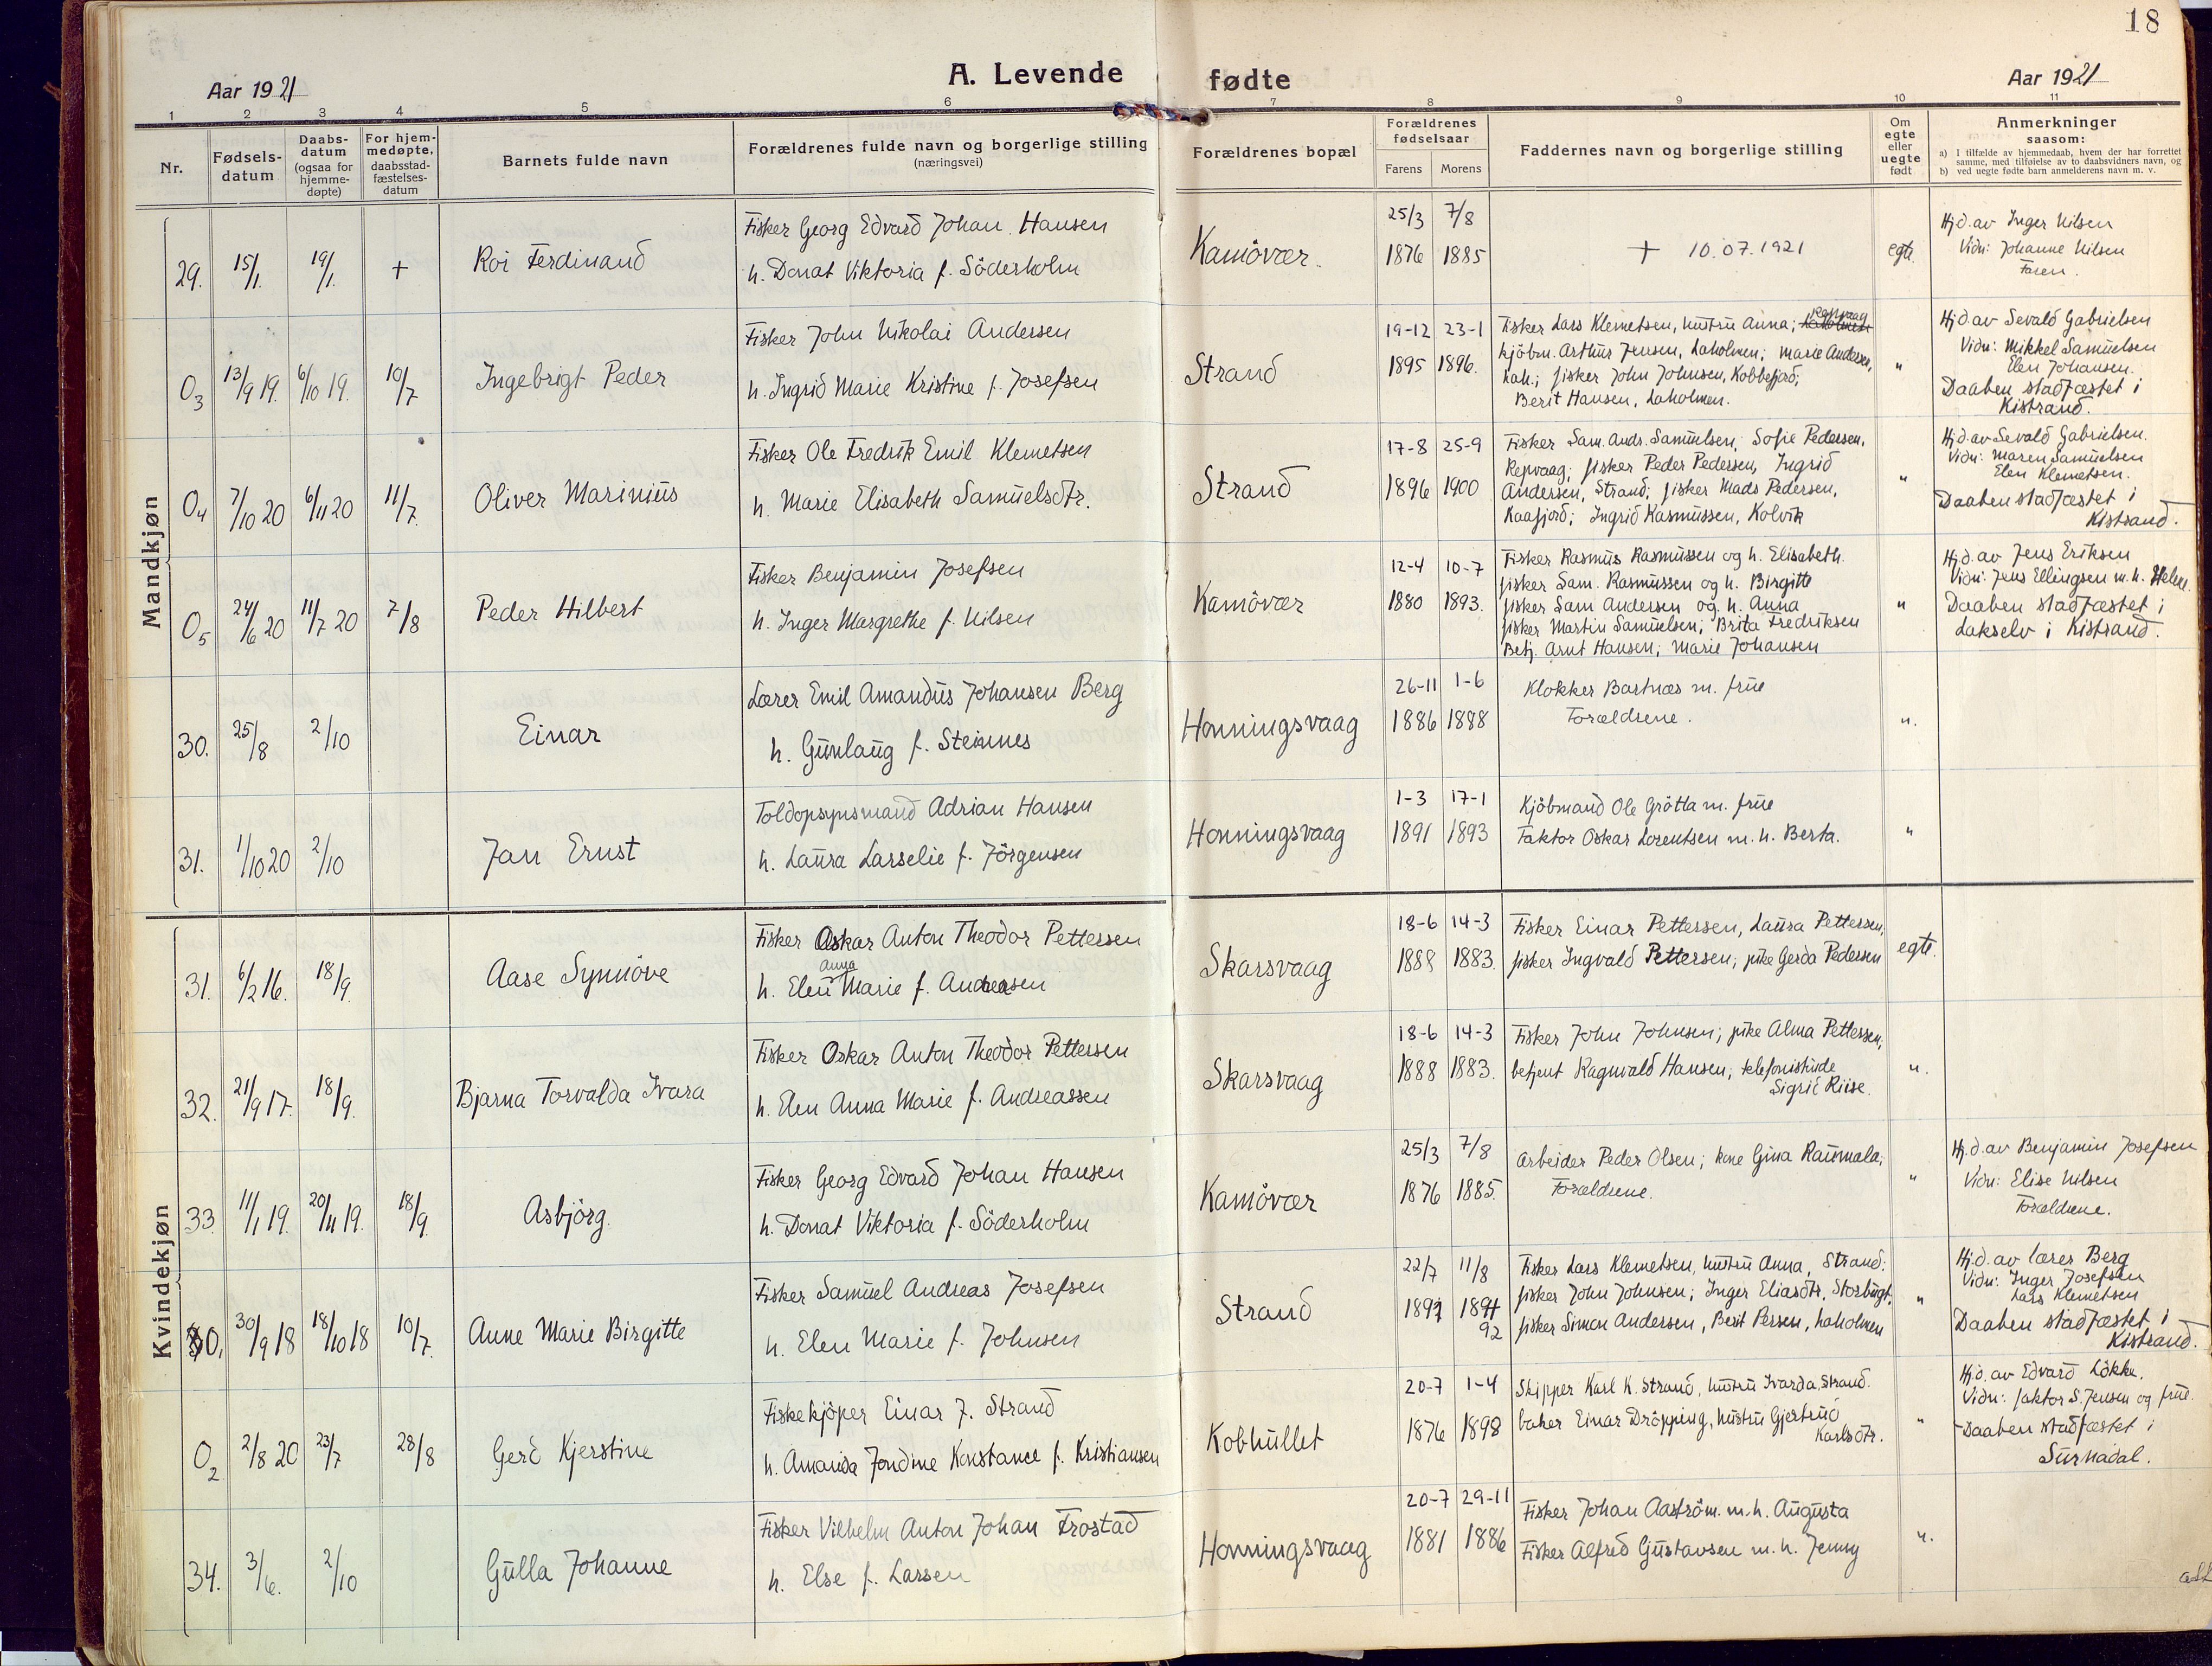 18
Aar 1921 A. Levende fødte Aar 1921
1 2 3 4 5 6 7 8 9 10 11
Nr. Fødselsdatum Daabsdatum (ogsaa for hjemmedøpte) For hjemmedøpte, daabsstadfæstelsesdatum Barnets fulde navn Forældrenes fulde navn og borgerlige stilling (næringsvei) Forældrenes bopæl Forældrenes fødselsaar Farens Morens Faddernes navn og borgerlige stilling Om egte eller uegte født Anmerkninger saasom:
a) I tilfælde av hjemmedaab, hvem der har forrettet samme, med tilføielse av to daabsvidners navn, og
b) ved uegte fødte barn anmelderens navn m. v.
Mandkjøn
29. 15/1. 19/1. + Roi Ferdinand
Fisker Georg Edvard Johan Hansen
h. Donat Viktoria f. Söderholm
Kamövær.
25/3 7/8
1876 1885
+ 10.07.1921
egte.
Hj.d. av Inger Nilsen
Vidn: Johanne Nilsen
Faren.
O3 13/9 19. 6/10 19. 10/7 Ingebrigt Peder
Fisker John Nikolai Andersen
h. Ingrid Marie Kristine f. Josefsen
Strand
19-12 23-1
1895 1896.
Fisker Lars Klemetsen, hustru Anna; Repvaag
kjöbm. Arthur Jensen, Laholmen; Marie Andersen,
Lah.; fisker John Johnsen, Kobbefjord;
Berit Hansen, Laholmen.
"
Hj.d. av Sevald Gabrielsen
Vidn: Mikkel Samuelsen
Elen Johansen.
Daaben stadfæstet i
Kistrand.
O4 7/10 20 6/11 20 11/7 Oliver Marinius
Fisker Ole Fredrik Emil Klemetsen
h. Marie Elisabeth Samuelsdtr.
Strand
17-8 25-9
1896 1900
Fisker Sam. Andr. Samuelsen; Sofie Pedersen,
Repvaag; fisker Peder Pedersen, Ingrid
Andersen, Strand; fisker Mads Pedersen,
Kaafjord; Ingrid Rasmussen, Kolvik
"
Hj.d. av Sevald Gabrielsen.
Vidn: Maren Samuelsen
Elen Klemetsen.
Daaben stadfæstet i
Kistrand.
O5 24/6 20 11/7 20 7/8 Peder Hilbert
Fisker Benjamin Josefsen
h. Inger Margrethe f. Nilsen
Kamövær
12-4 10-7
1880 1893.
Fisker Rasmus Rasmussen og h. Elisabeth.
fisker Sam. Rasmussen og h. Birgitte
fisker Sam Andersen og h. Anna
fisker Martin Samuelsen; Brita Fredriksen
Betj. Arnt Hansen; Marie Johansen
"
Hj.d. av Jens Eriksen
Vidn: Jens Ellingsen m. h. Helene
Daaben stadfæstet i
Lakselv i Kistrand.
30. 25/8 2/10 Einar
Lærer Emil Amandus Johansen Berg
h. Gunlaug f. Steinnes
Honningsvaag
26-11 1-6
1886 1888
Klokker Bartnæs m. frue
Forældrene.
".
31. 1/10 20 2/10 Jan Ernst
Toldopsynsmand Adrian Hansen
h. Laura Larselie f. Jörgensen
Honningsvaag
1-3 17-1
1891 1893
Kjöbmand Ole Grötta m. frue
Faktor Oskar Lorentsen m. h. Berta.
"
Kvindekjøn
31. 6/2 16. 18/9. Aase Synnöve
Fisker Oskar Anton Theodor Pettersen
h. Elen Anna Marie f. Andreasen
Skarsvaag
18-6 14-3
1888 1883.
Fisker Einar Pettersen, Laura Pettersen,
fisker Ingvald Pettersen; pike Gerda Pedersen
egte.
32. 21/9 17. 18/9. Bjarna Torvalda Ivara
Fisker Oskar Anton Theodor Pettersen
h. Elen Anna Marie f. Andreassen
Skarsvaag
18-6 14-3
1888 1883.
Fisker John Johnsen; pike Alma Pettersen;
betjent Ragnvald Hansen; telefonistinde
Sigrid Riise.
".
33 11/1 19. 20/11 19. 18/9. Asbjörg.
Fisker Georg Edvard Johan Hansen
h. Donat Viktoria f. Söderholm
Kamövær
25/3 7/8
1876 1885.
Arbeider Peder Olsen; kone Gina Raumala;
Forældrene.
"
Hj.d. av Benjamin Josefsen
Vidn: Elise Nilsen
Forældrene.
O1 30/9 18 18/10 18 10/7. Anne Marie Birgitte
Fisker Samuel Andreas Josefsen
h. Elen Marie f. Johnsen
Strand
22/7 11/8
92
Fisker Lars Klemetsen, hustru Anna, Strand:
fisker John Johnsen; Inger Eliasdtr. Storbugt.
fisker Simon Andersen, Berit Persen, Laholmen
"
Hj.d. av lærer Berg
Vidn: Inger Josefsen
Lars Klemetsen
Daaben stadfæstet i
Kistrand.
O2 2/8 20 23/7 28/8 Gerd Kjerstine
Fiskekjöper Einar J. Strand
h. Amanda Jondine Konstance f. Kristiansen
Kobhullet
20-7 1-4
1876 1898
Skipper Karl K. Strand, hustru Ivarda Strand.
baker Einar Dröpping, hustru Gjertrud
Karlsdtr.
"
Hj.d. av Edvard Lökke.
Vidn: faktor S. Jensen og frue.
Daaben stadfæstet i
Surnadal.
34. 3/6. 2/10 Gulla Johanne
Fisker Vilhelm Anton Johan Frostad
h. Else f. Larsen
Honningsvaag
20-7 29-11
1881 1886
Fisker Johan Aaström. m. h. Augusta
Fisker Alfred Gustavsen m. h. Jenny
".